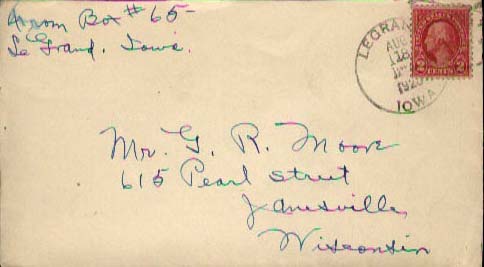 From Box #65-
Le Grand, Iowa.
LEGRAN
AUG
18
192
IOWA
2 CENTS 2
Mr. G. R. Moore
615 Pearl street
Janesville,
Wisconsin